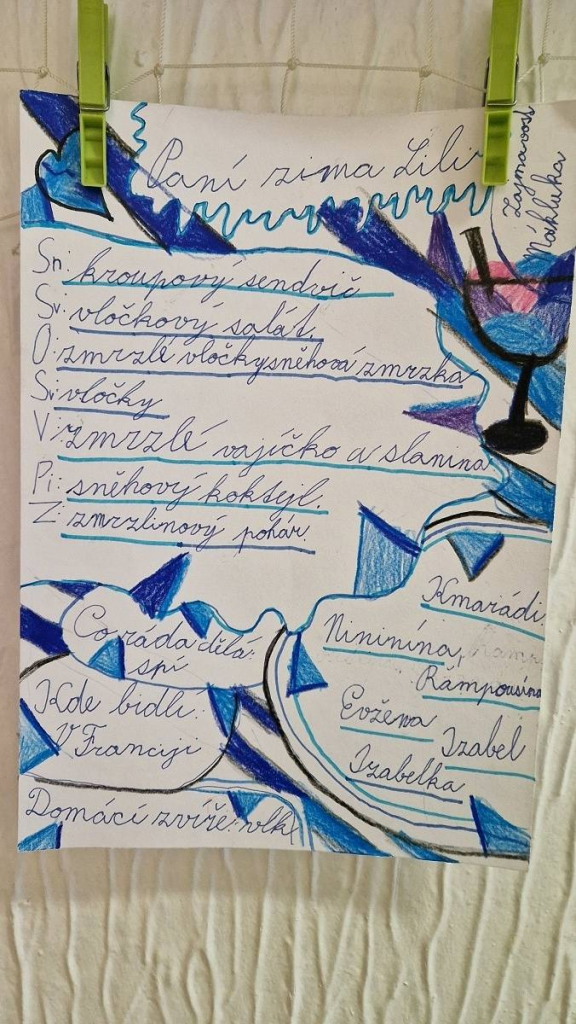 Paní zima Lili
Sn: kroupový sendvič
Sv: vločkový salát.
O: zmrzlé vločkysněhová zmrzka
Si: vločky
V: zmrzlé vajíčko a slanina
Pi: sněhový koktejl.
Z: zmrzlinový pohár.
Co ráda dělá:
spí
Kde bidlí:
V Franciji
Domácí zvíře: vlk
Kmarádi:
Nininína,
Rampousína
Evžena
Izabel
Izabelka